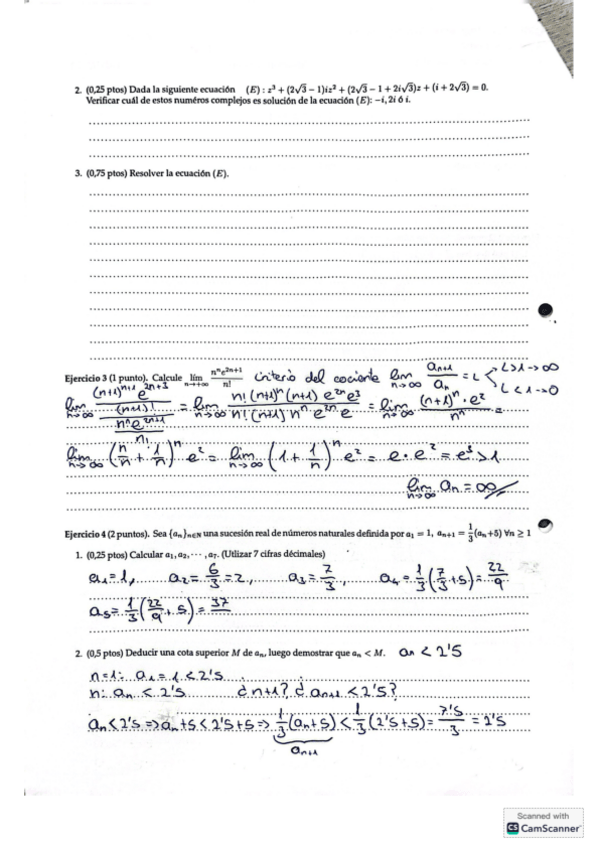 2. (0,25 ptos) Dada la siguiente ecuación (E) : z³ + (2√3 − 1)iz² + (2√3 − 1 + 2i√3)z + (i + 2√3) = 0.
Verificar cuál de estos numéros complejos es solución de la ecuación (E): −i, 2i ó i.
3. (0,75 ptos) Resolver la ecuación (E).
Ejercicio 3 (1 punto). Calcule lim n→+∞ nⁿe²ⁿ⁺¹/n! criterio del cociente lim n→∞ aₙ₊₁/aₙ = L < L>1→∞ L<1→0
lim n→∞ ((n+1)ⁿ⁺¹ e²ⁿ⁺³/(n+1)!)/(nⁿe²ⁿ⁺¹/n!) = lim n→∞ n!(n+1)ⁿ(n+1) e²ⁿe³/n!(n+1) nⁿ e²ⁿ e = lim n→∞ (n+1)ⁿ·e²/nⁿ =
lim n→∞ (n/n + 1/n)ⁿ e² = lim n→∞ (1 + 1/n)ⁿ e² = e·e² = e³>1
lim n→∞ aₙ = ∞
Ejercicio 4 (2 puntos). Sea {aₙ}ₙ∈ℕ una sucesión real de números naturales definida por a₁ = 1, aₙ₊₁ = 1/3(aₙ+5) ∀n ≥ 1
1. (0,25 ptos) Calcular a₁, a₂, ⋯ , a₇. (Utlizar 7 cifras décimales)
a₁=1, a₂= 6/3 =2, a₃= 7/3, a₄= 1/3(7/3+5)= 22/9
a₅= 1/3(22/9+5)= 37
2. (0,5 ptos) Deducir una cota superior M de aₙ, luego demostrar que aₙ < M. aₙ < 2'5
n=1: a₁=1<2'5
n: aₙ < 2'5 ¿n+1? ¿aₙ₊₁ <2'5?
aₙ<2'5 => aₙ+5<2'5+5 => 1/3(aₙ+5) < 1/3(2'5+5)= 7'5/3 = 2'5
aₙ₊₁
Scanned with
CS CamScanner